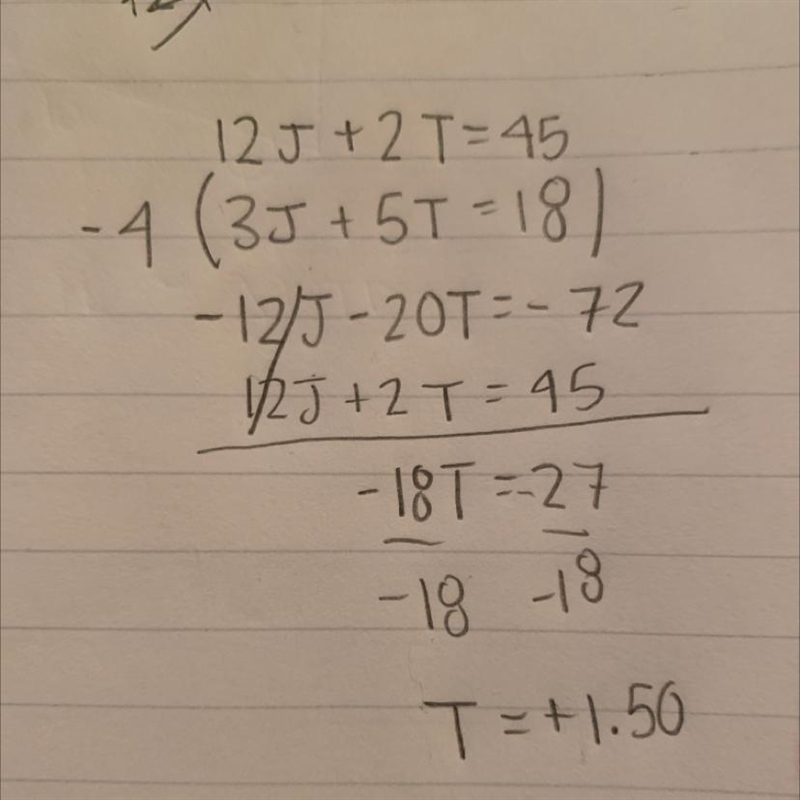 12J + 2T = 45
-4 (3J + 5T = 18)
-12J - 20T = -72
12J + 2T = 45
-18T = -27
-18 -18
T = +1.50